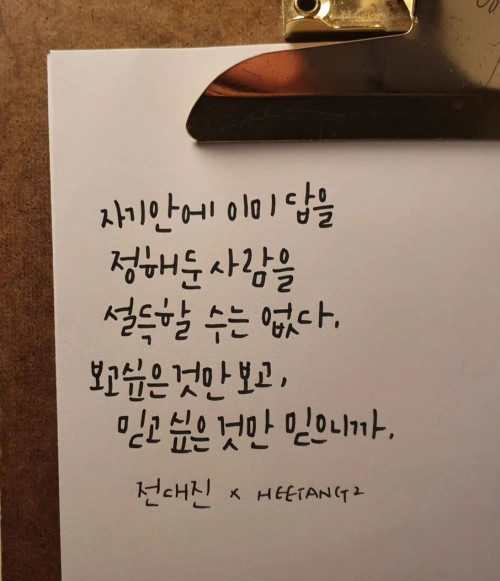 자기안에 이미 답을
정해둔 사람을
설득할 수는 없다.
보고싶은것만 보고,
믿고싶은것만 믿으니까.
전대진 x HEETANG2